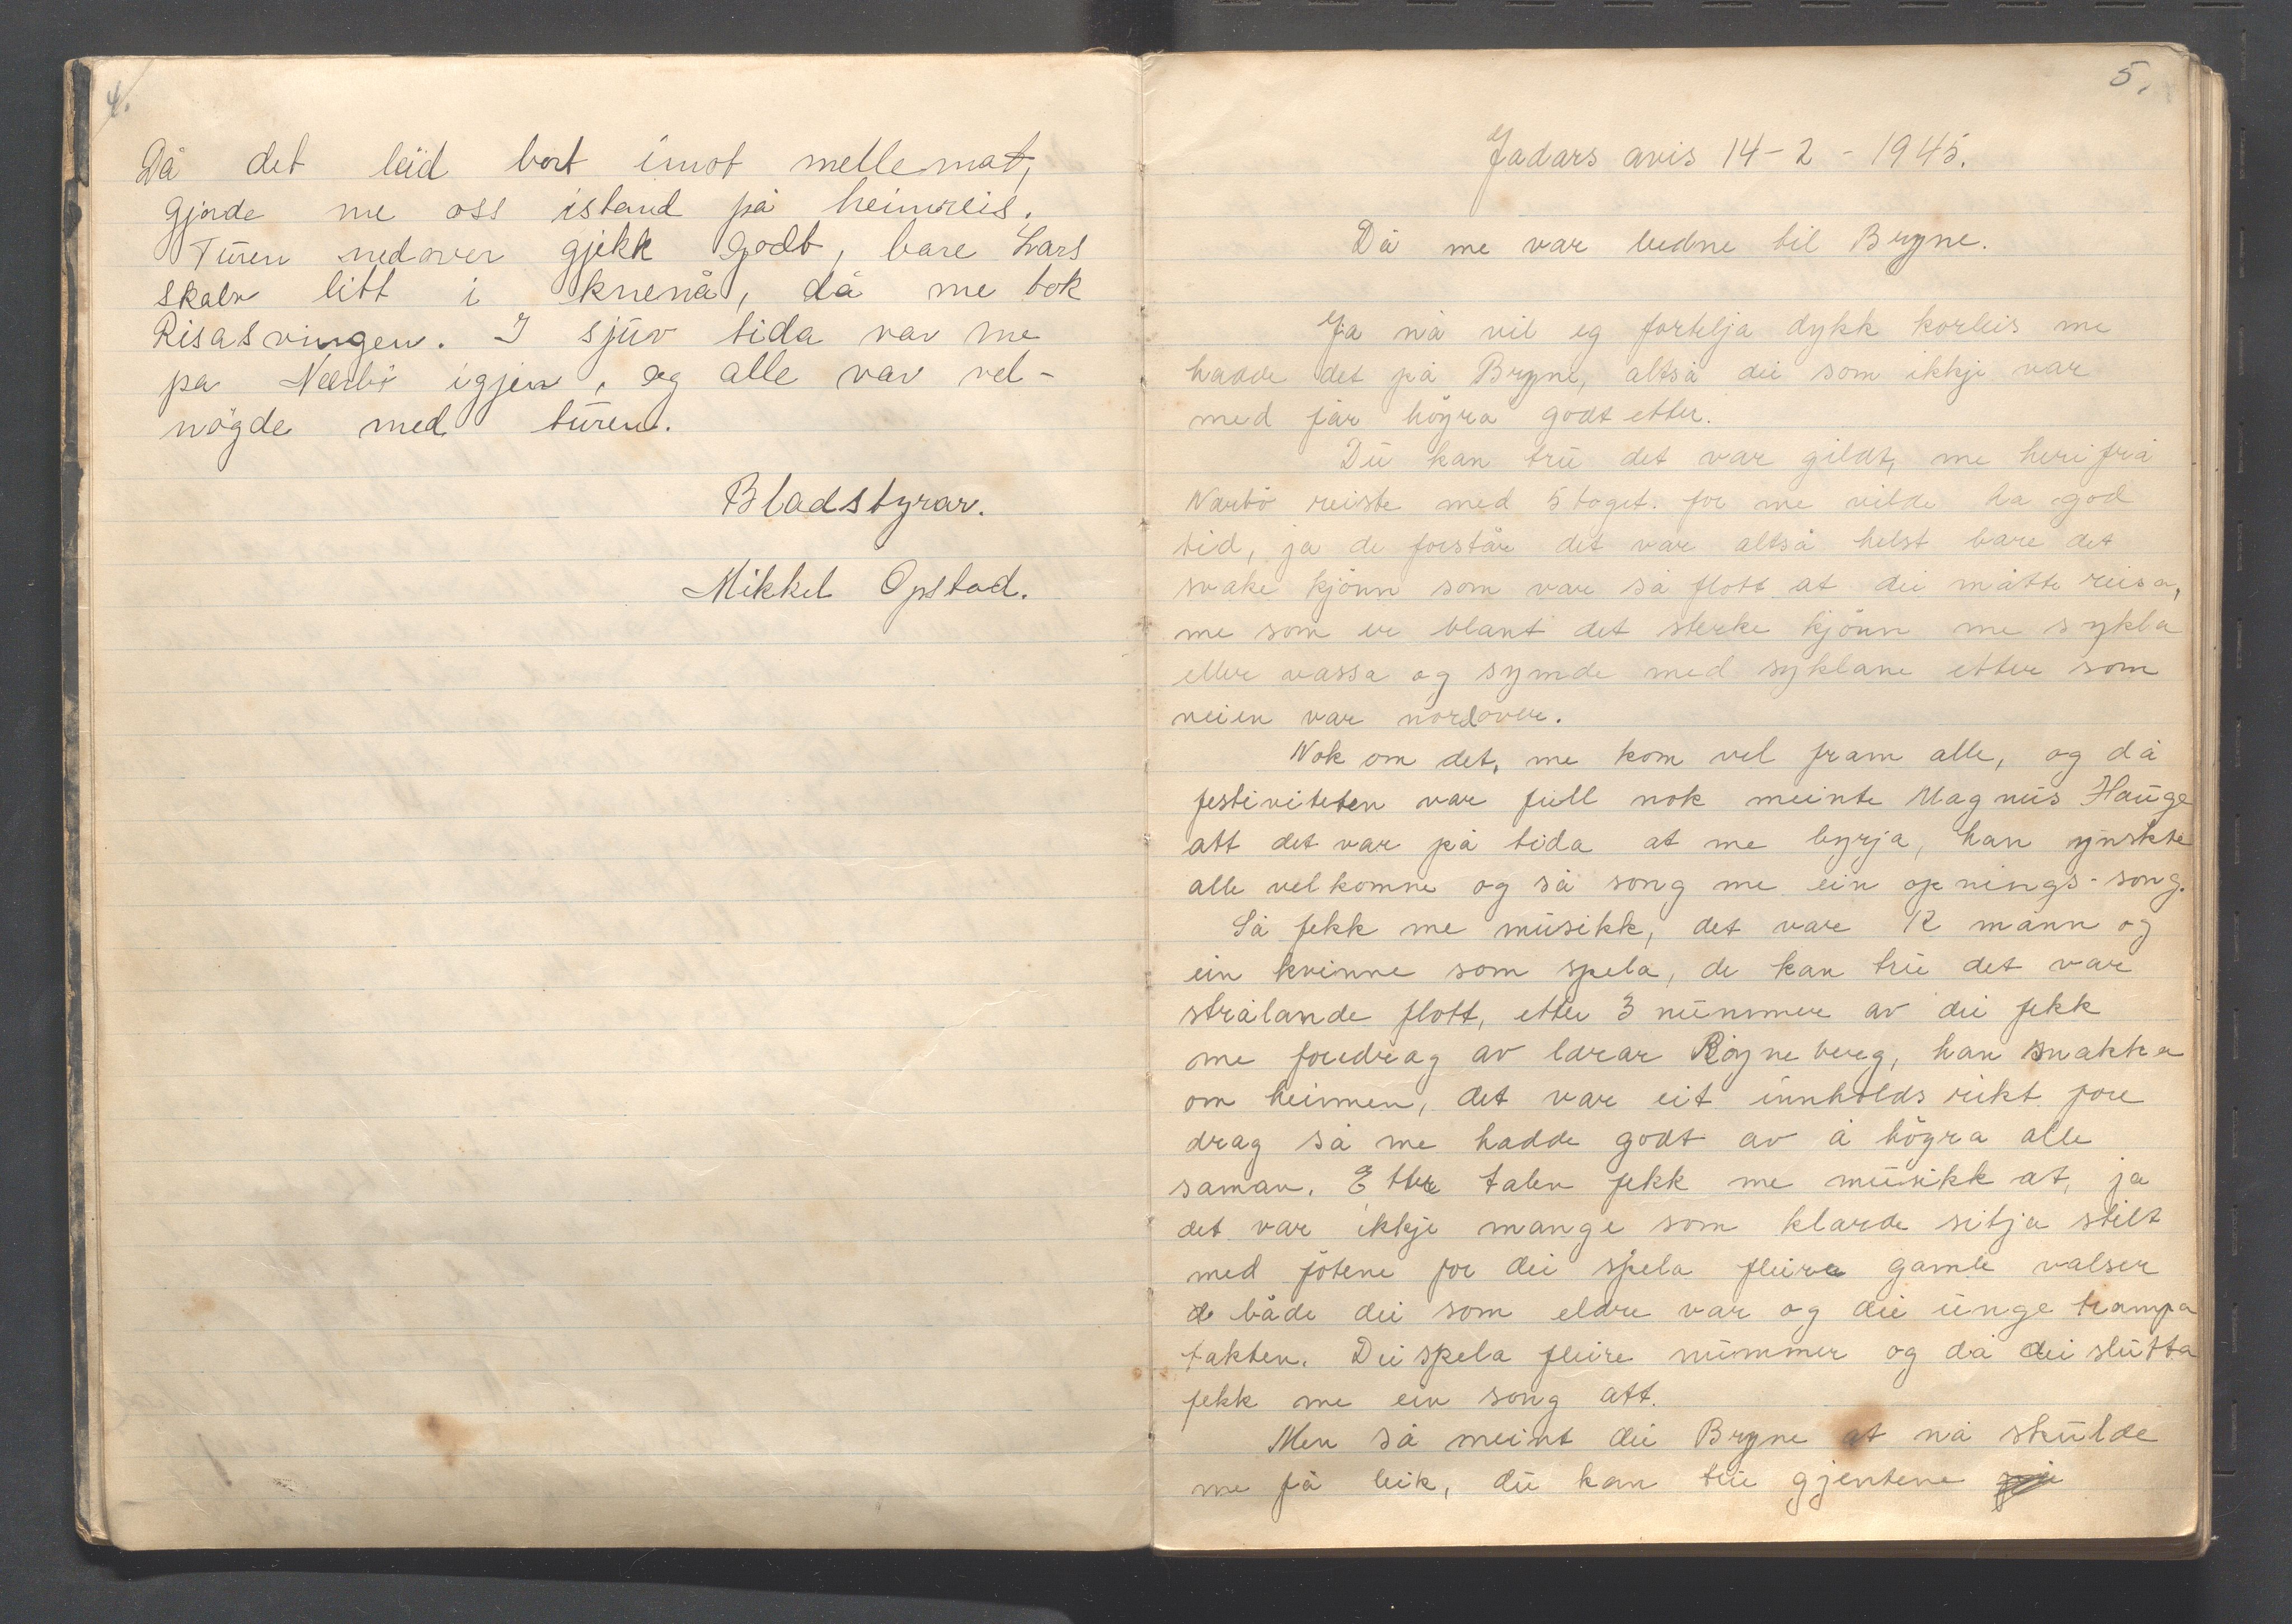 4.
Då det leid bort imot mellemat,
gjorde me oss istand på heimreis.
Turen nedover gjekk godt, bare Lars
skalv litt i knenå, då me tok
Risasvingen. I sjüv tida var me
pa Nærbö igjen, og alle var vel-
nögde med türen.
Bladstyrar.
Mikkel Opstad.
5.
Jadars avis 14-2-1945.
Då me var bedne til Bryne.
Ja nå vil eg fortelja dykk korleis me
hadde det på Bryne, altså dei som ikkje var
med får höyra godt etter.
Dü kan trü det var gildt, me herifrå
Nærbö reiste med 5 toget. for me vilde ha god
tid, ja de forstår det var altså helst bare det
svake kjönn som var så flott at dei måtte reisa,
me som er blant det sterke kjönn me sykla
eller vassa og symde med syklane etter som
veien var nordover.
Nok om det, me kom vel fram alle, og då
festiviteten var füll nok meinte Magnüs Haüge
att det var på tida at me byrja, han ynskte
alle velkomne og så song me ein opnings-song.
Så fekk me müsikk, det var 12 mann og
ein kvinne som spela, de kan trü det var
strålande flott, etter 3 nümmer av dei fekk
me foredrag av lærar Röyneberg, han snakka
om heimen, det var eit innholds rikt fore
drag så me hadde godt av å högra alle
saman. Etter talen fekk me müsikk at, ja
det var ikkje mange som klarde sitja stilt
med fötene for dei spela fleire gamle valser
både dei som eldre var og dei ünge trampa
takten. Dei spela fleire nümmer og då dei slütta
fekk me ein song att.
Men så meint dei Bryne at nå skülde
me få leik, dü kan trü gjentene